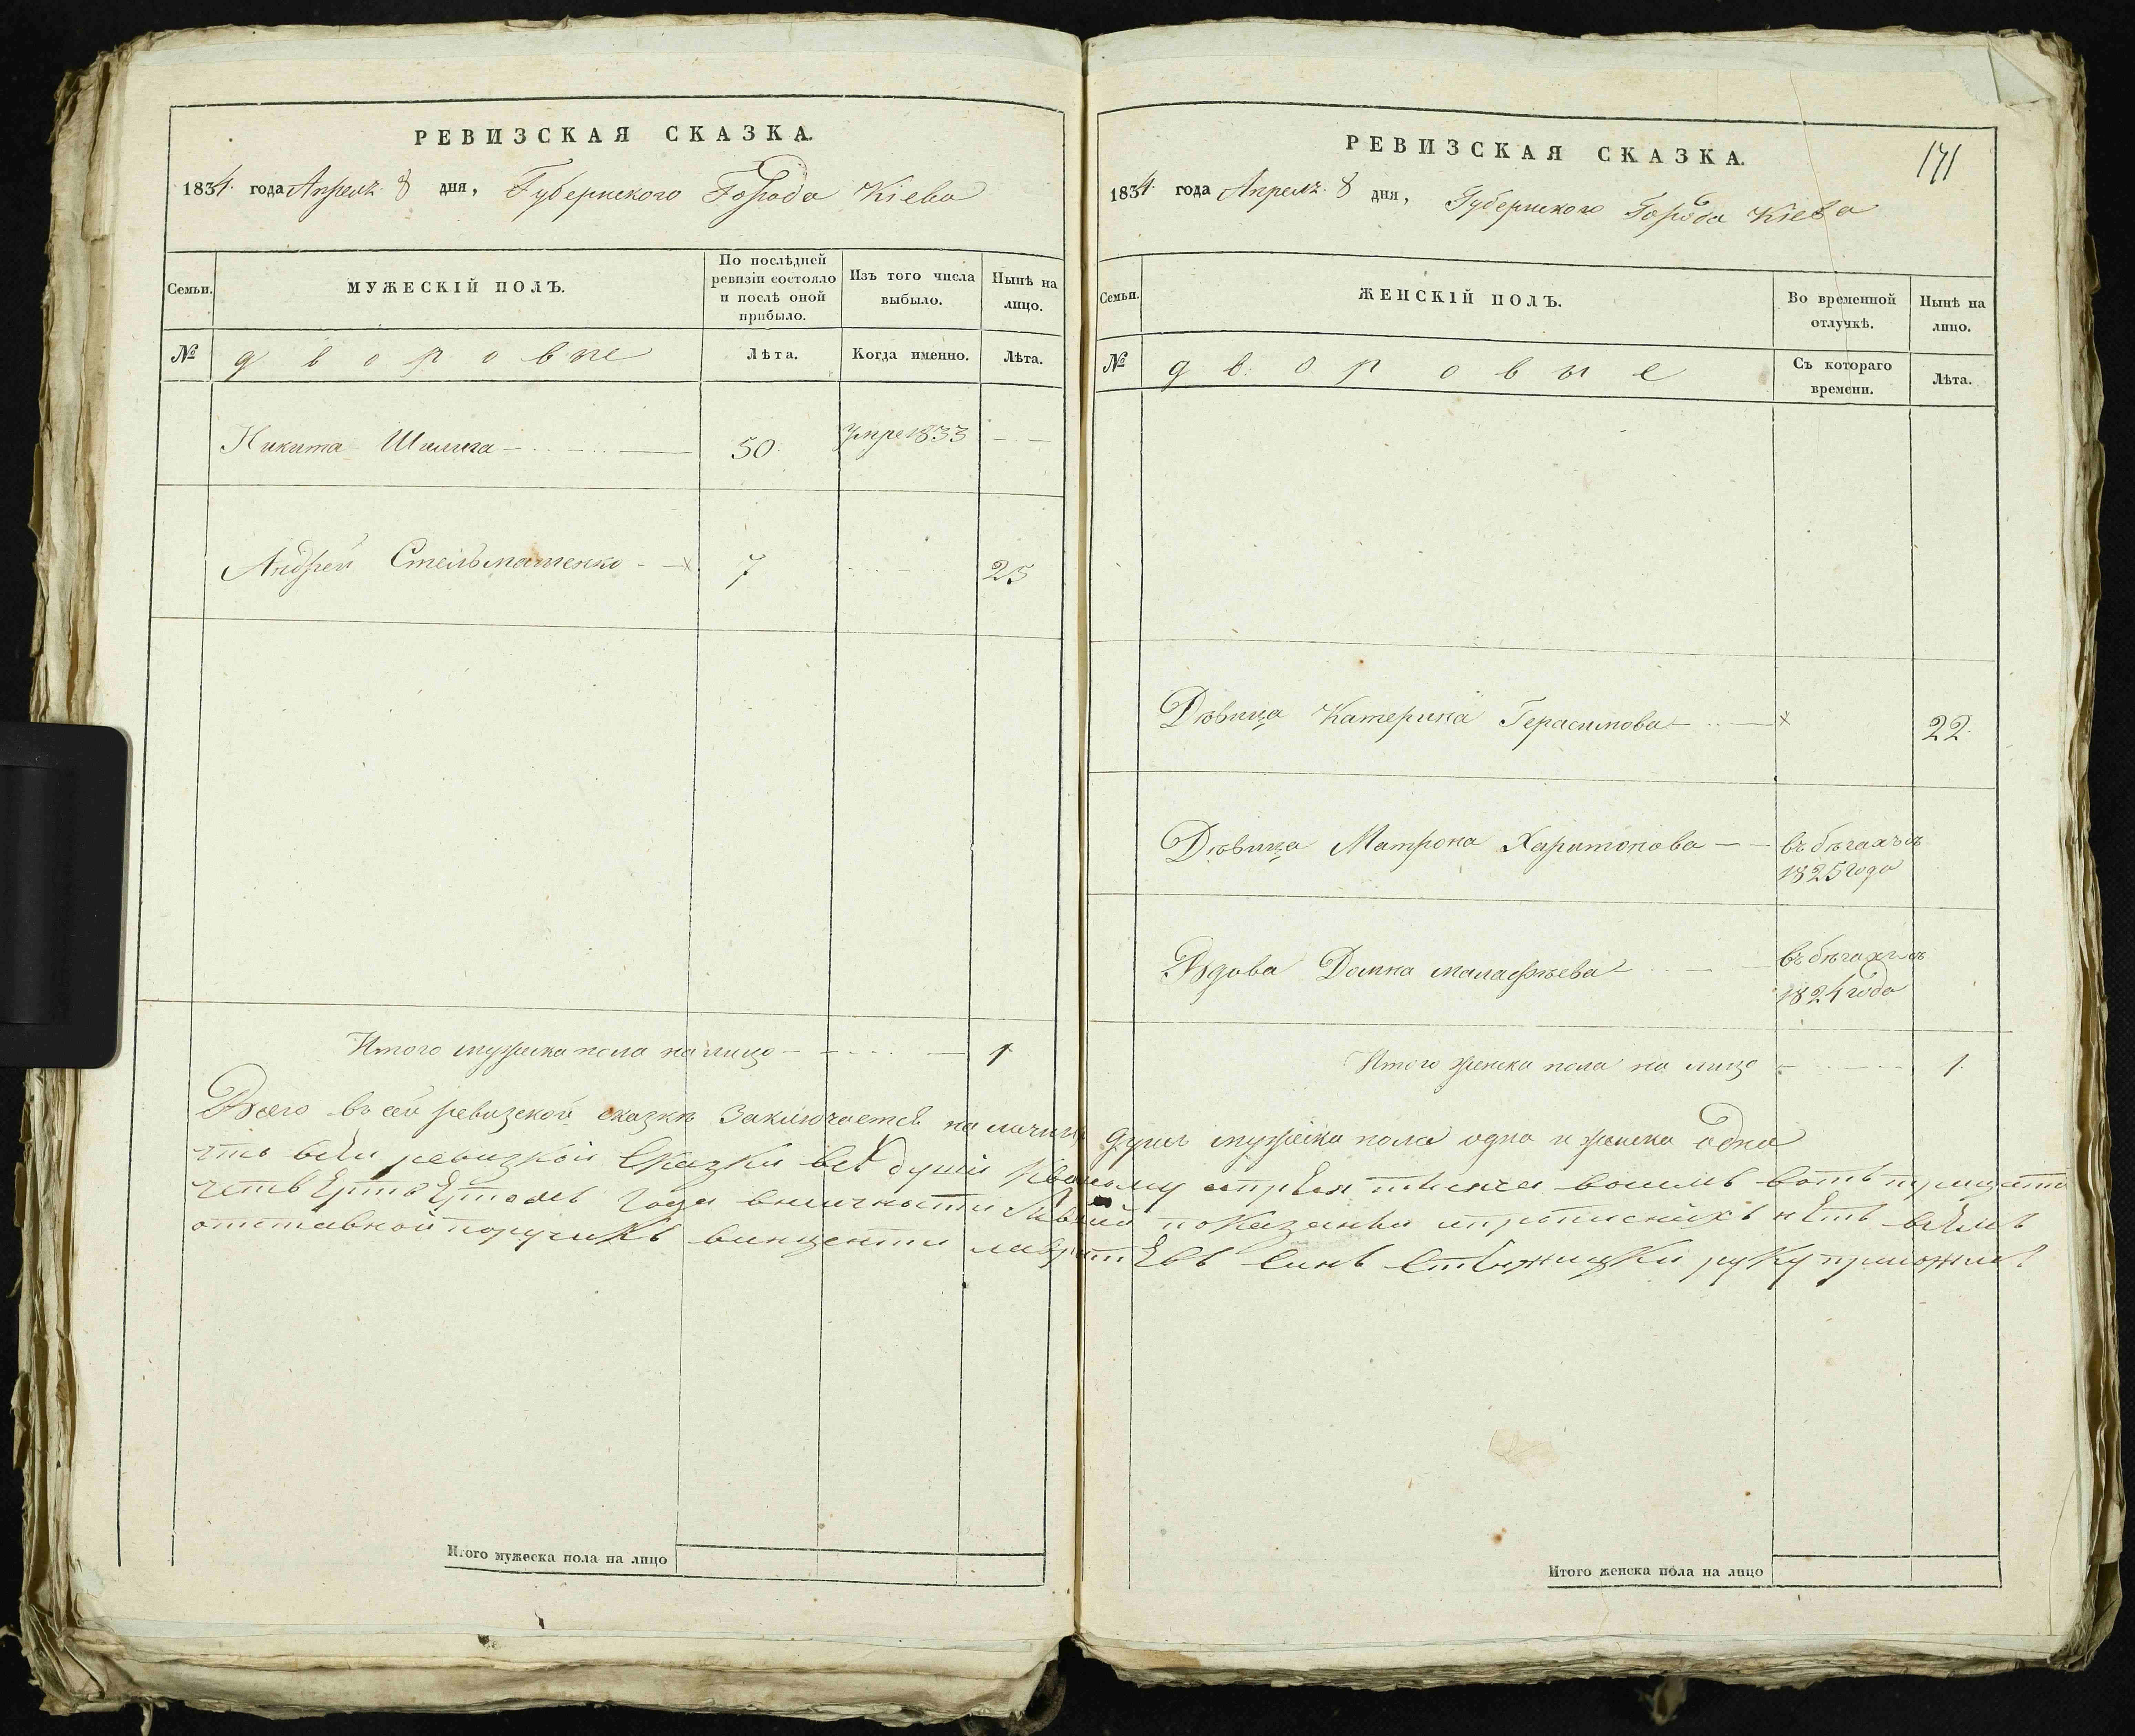 РЕВИЗСКАЯ СКАЗКА.
1834. года Апреля 8 дня, Губернского Города Кіева
Семьи.
МУЖЕСКІЙ ПОЛЪ.
По послѣдней ревизіи состояло и послѣ оной прибыло.
Изъ того числа выбыло.
Нынѣ на лицо.
№
дворовые
Лѣта.
Когда именно.
Лѣта.
Никита 50. умре 1833
Андрей Стельмашенко 7 25
Итого мужеска пола на лицо 1
РЕВИЗСКАЯ СКАЗКА.
171
1834. года Апреля 8 дня, Губернского Города Кіева
Семьи.
ЖЕНСКІЙ ПОЛЪ.
Во временной отлучкѣ.
Нынѣ на лицо.
№
дворовые
Съ котораго времени.
Лѣта.
Дѣвица Катерина Герасимова 22.
Дѣвица Матрона Харитонова въ бѣгахъ съ
1825 года
Вдова Домна Малафѣева въ бѣгахъ съ
1824 года
Итого женска пола на лицо 1.
Всего въ сей ревизской сказкѣ заключается на лицо душъ мужеска пола одна и женска одна
что всеи ревизкой сказки всѣ душы апреля тисяча восимъ сотъ трицать
четвертомъ года вналичности показаны и прописнихъ нѣтъ всемъ
отставной поручикъ винценти синъ руку приложилъ
Итого мужеска пола на лицо
Итого женска пола на лицо